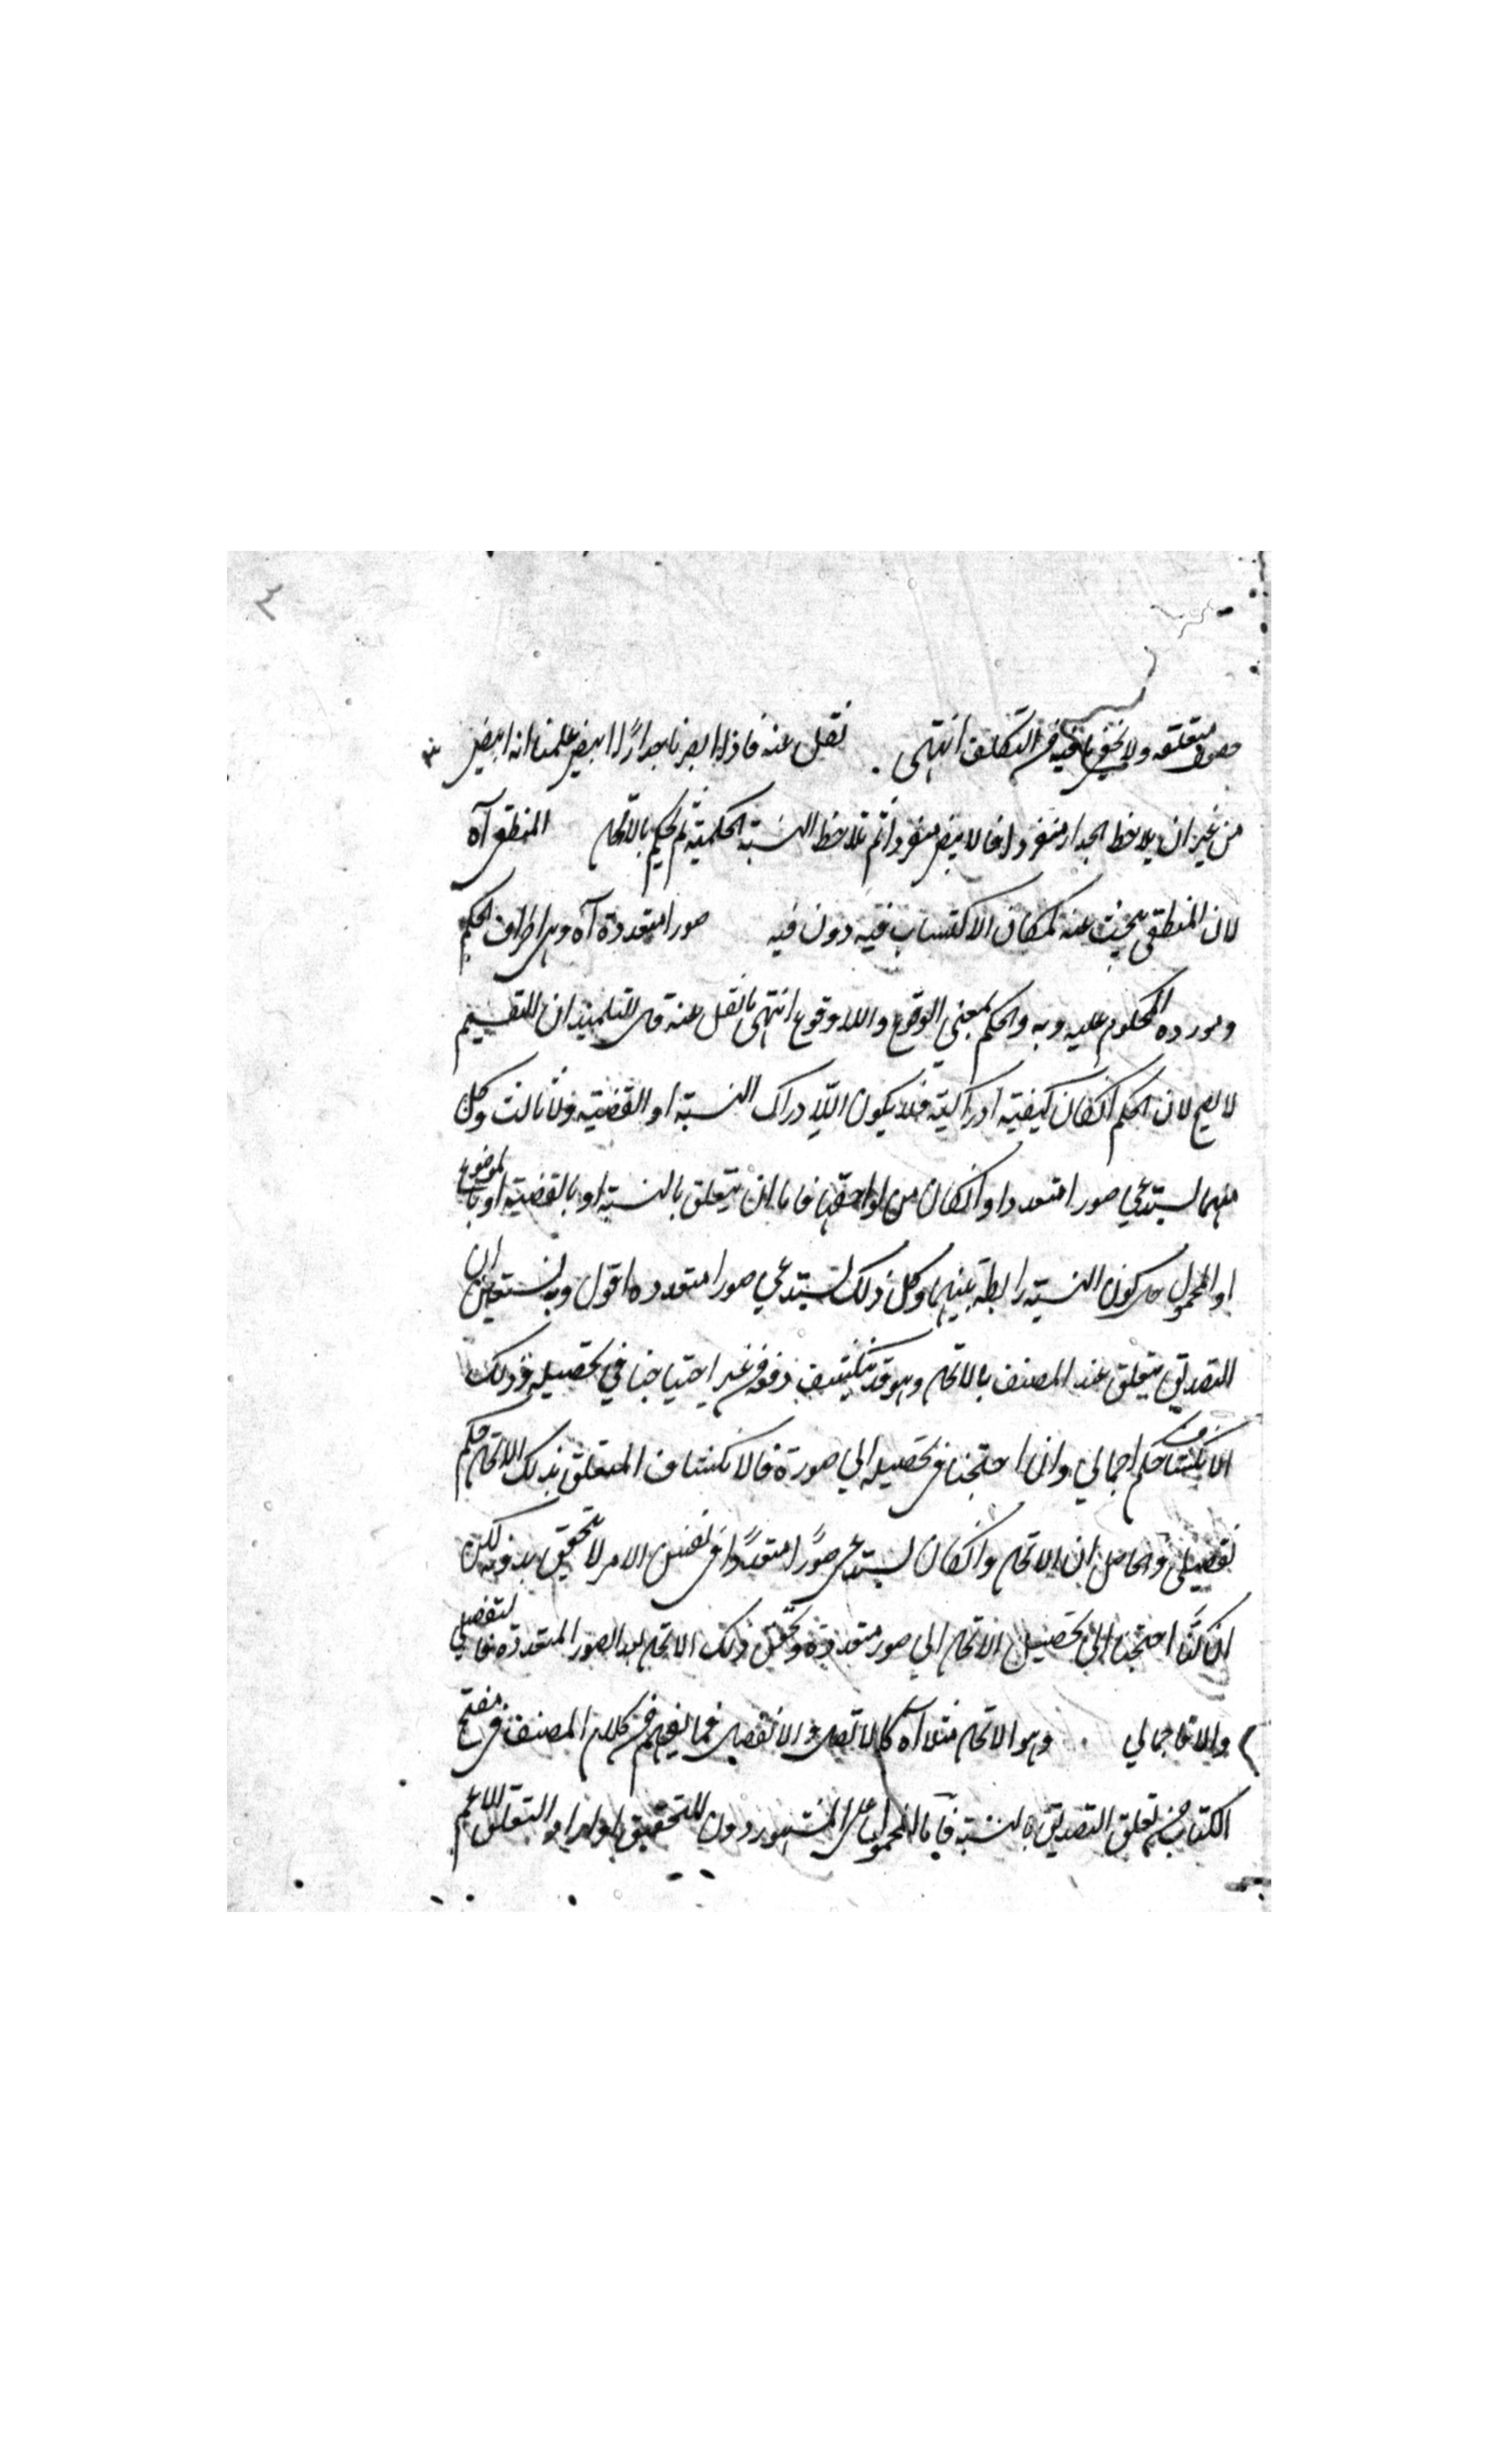 ٣
حصول متعلقه ولا يخفى ما فيه من التكلف انتهى نقل عنه فاذا ابصرنا جدارًا ابيض علمنا انه ابيض
من غير ان يلاحظ الجدار منفردا فالابيض منفردا ثم تلاحظ النسبة الحكمية ثم يحكم بالاتحاد المنطقى آه
لان المنطقى يبحث عنه لمكان الاكتساب فيه دون فيه صورا متعددة آه وهى اطراف الحكم
ومورده المحكوم عليه وبه والحكم بمعنى الوقوع واللاوقوع انتهى ما نقل عنه قال التلميذ ان التقسيم
لا يصح لان الحكم انكان كيفية ادراكية فلا يكون الا ادراك النسبة او القضية ولا ثالث وكل
منهما يستدعي صورا متعددا وانكان من لواحقها فاما ان يتعلق بالنسبة او بالقضية او بالموضوع
او المحمول حال كون النسبة رابطة بينهما وكل ذلك يستدعي صورا متعدده اقول وبه نستعين ان
التصديق يتعلق عند المصنف بالاتحاد وهو قد ينكشف دفعة من غير احتياجنا في تحصيله وذلك
الانكشاف حكم اجمالي وان احتجنا فى تحصيله الي صورة فالانكشاف المتعلق بذلك الاتحاد حكم
تفصيلى والحاصل ان الاتحاد وانكان يستدعى صورًا متعددًا فى نفس الامر لا يتحقق بدونه لكن
ان كنا احتجنا الى تحصيل الاتحاد الي صور متعددة وتحقق ذلك الاتحاد بعد الصور المتعددة فالتفصيلي
والا فاجمالي وهو الاتحاد مثلا آه كالاتصال والانفصال فما يفهم من كلام المصنف فى مفتتح
الكتاب من تعلق التصديق بالنسبة فاما على المشهور دون التحقيق او اراد التعلق الاعم